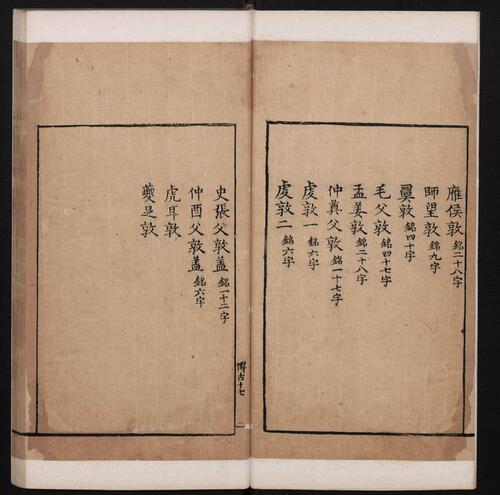 雁侯敦 銘二十八字
師望敦 銘九字
㠱敦 銘四十字
毛父敦 銘四十七字
孟姜敦 銘二十八字
仲奠父敦 銘一十七字
虔敦一 銘六字
虔敦二 銘六字
史張父敦蓋 銘一十二字
仲酉父敦蓋 銘六字
虎耳敦
夔足敦
博古十七
一